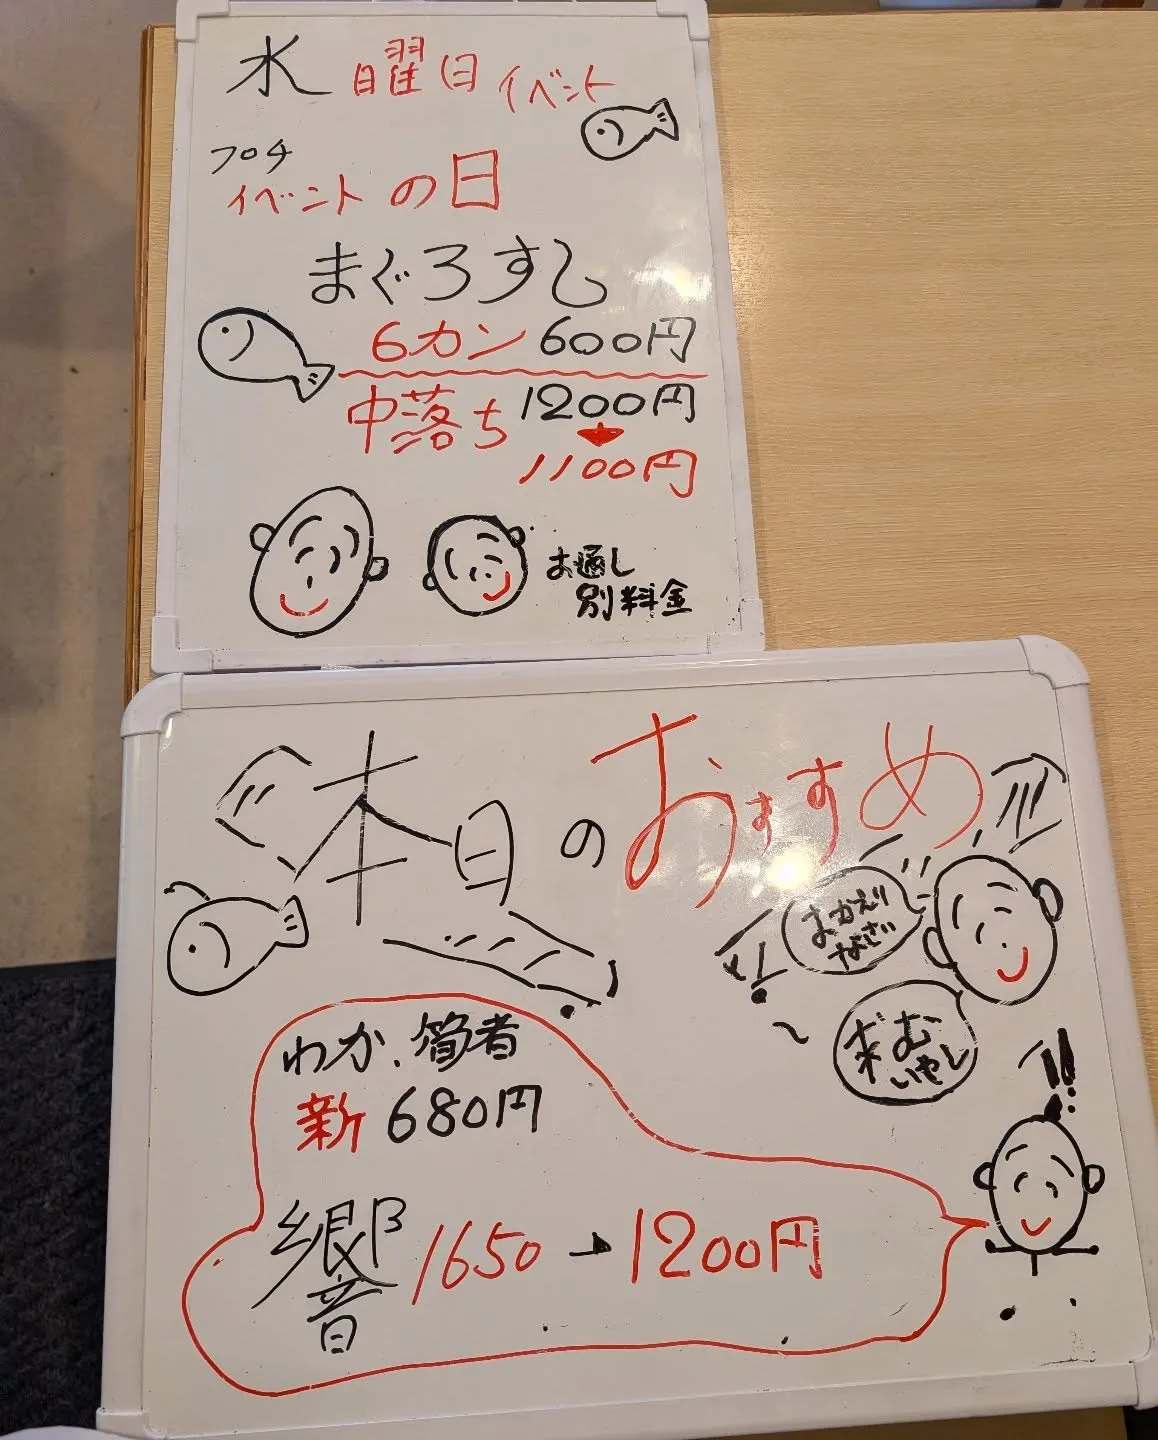 水曜日イベント
フロチ
イベントの日
まぐろすし
6カン600円
中落ち1200円
1100円
お通し
別料金
本日のおすすめ
おかえり
なさい
むし
いやし
わか、筒者
新680円
響1650→1200円